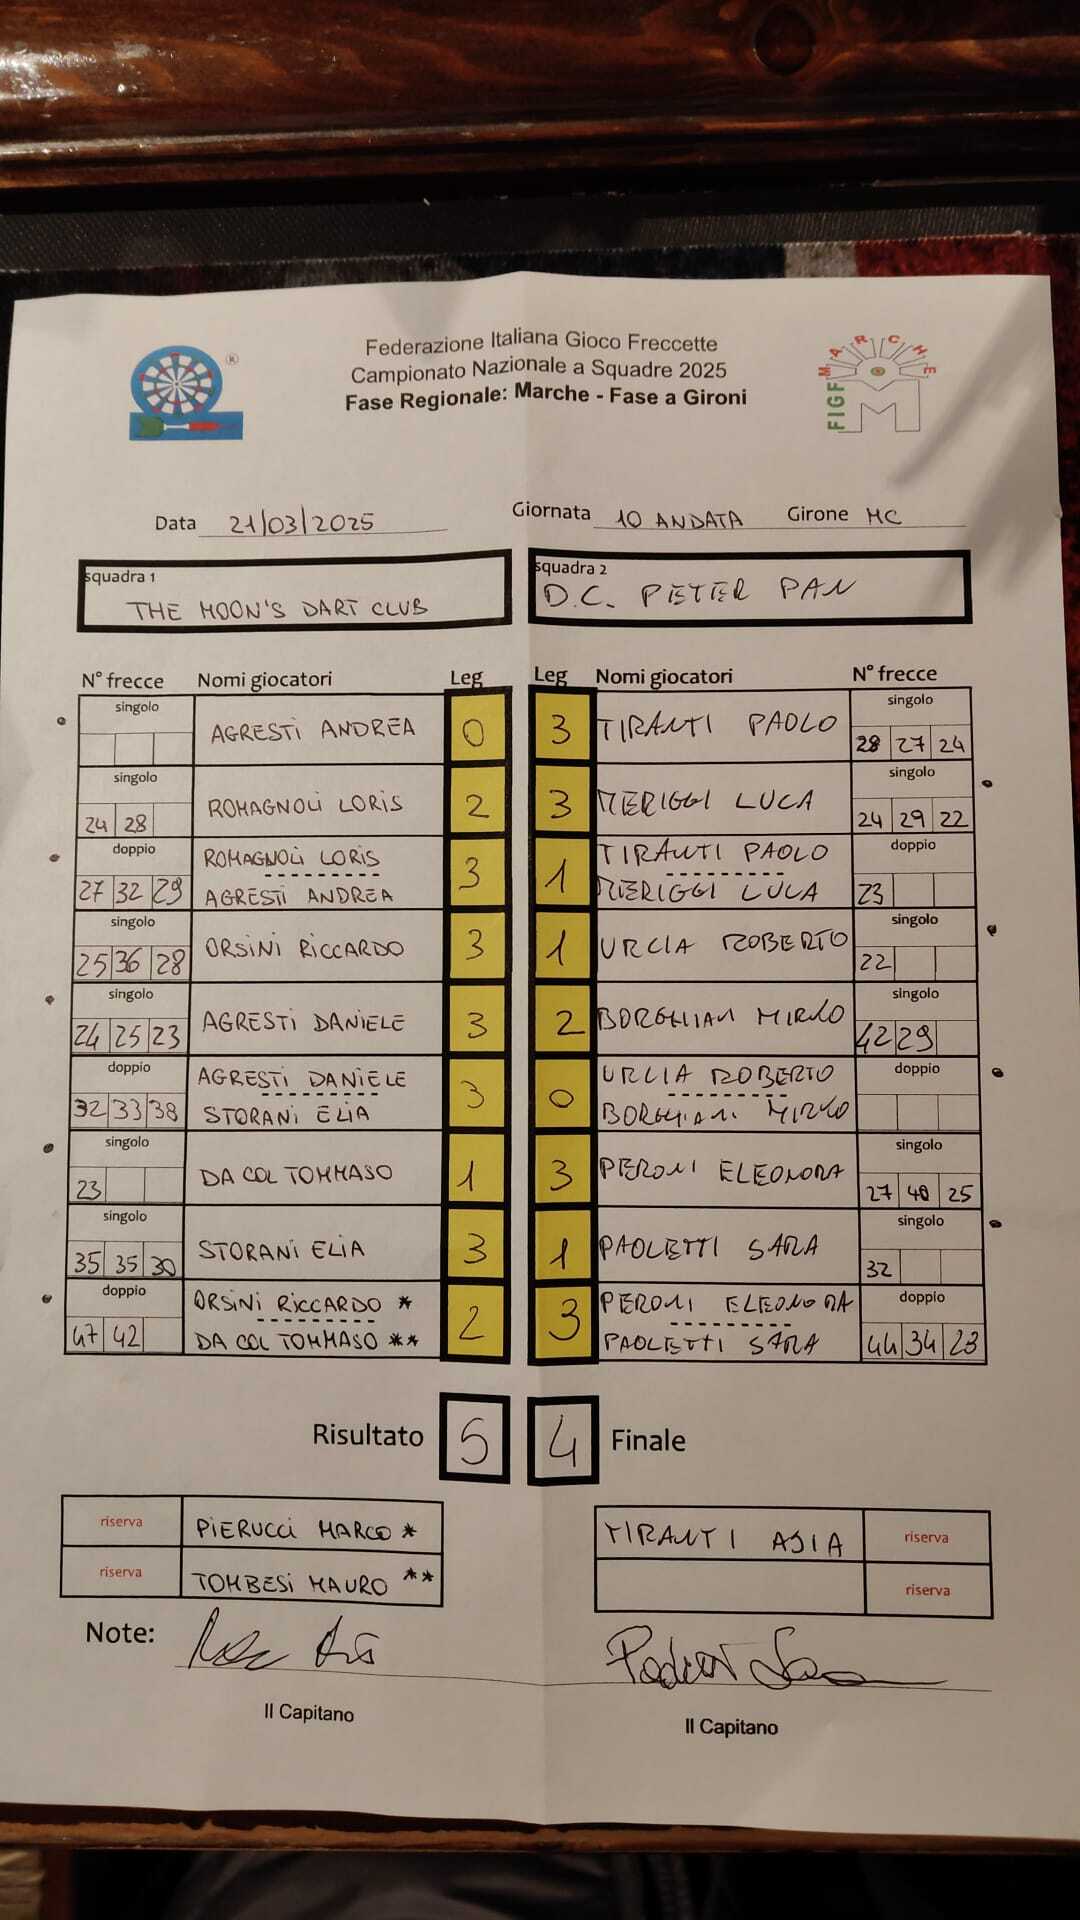 Federazione Italiana Gioco Freccette
Campionato Nazionale a Squadre 2025
Fase Regionale: Marche - Fase a Gironi
®
MARCHE
FIGF
M
Data 21/03/2025 Giornata 10 ANDATA Girone MC
squadra 1 squadra 2
THE MOON'S DART CLUB D.C. PETER PAN
N° frecce Nomi giocatori Leg Leg Nomi giocatori N° frecce
singolo AGRESTI ANDREA 0 3 TIRANTI PAOLO singolo
28 27 24
singolo ROMAGNOLI LORIS 2 3 MERIGGI LUCA singolo
24 28 24 29 22
doppio ROMAGNOLI LORIS 3 1 TIRANTI PAOLO doppio
27 32 29 AGRESTI ANDREA MERIGGI LUCA 23
singolo ORSINI RICCARDO 3 1 URCIA ROBERTO singolo
25 36 28 22
singolo AGRESTI DANIELE 3 2 BORGHIANI MIRKO singolo
24 25 23 42 29
doppio AGRESTI DANIELE 3 0 URCIA ROBERTO doppio
32 33 38 STORANI ELIA BORGHIANI MIRKO
singolo DA COL TOMMASO 1 3 PERONI ELEONORA singolo
23 27 40 25
singolo STORANI ELIA 3 1 PAOLETTI SARA singolo
35 35 30 32
doppio ORSINI RICCARDO * 2 3 PERONI ELEONORA doppio
47 42 DA COL TOMMASO ** PAOLETTI SARA 44 34 23
Risultato 5 4 Finale
riserva PIERUCCI MARCO * TIRANTI ASIA riserva
riserva TOMBESI MAURO ** riserva
Note:
Il Capitano Il Capitano